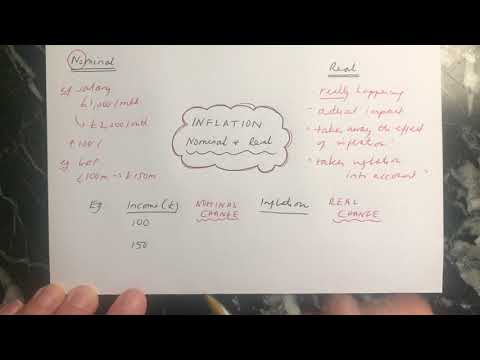 Nominal
eg salary
£1,000/mth
£2,000/mth
↑100%
eg GDP
£100m → £150m
INFLATION
Nominal & Real
Real
- really happening
- actual impact
- "take away the effect
of inflation"
- "takes inflation
into account"
Eg Income (£) NOMINAL CHANGE Inflation REAL CHANGE
100
150